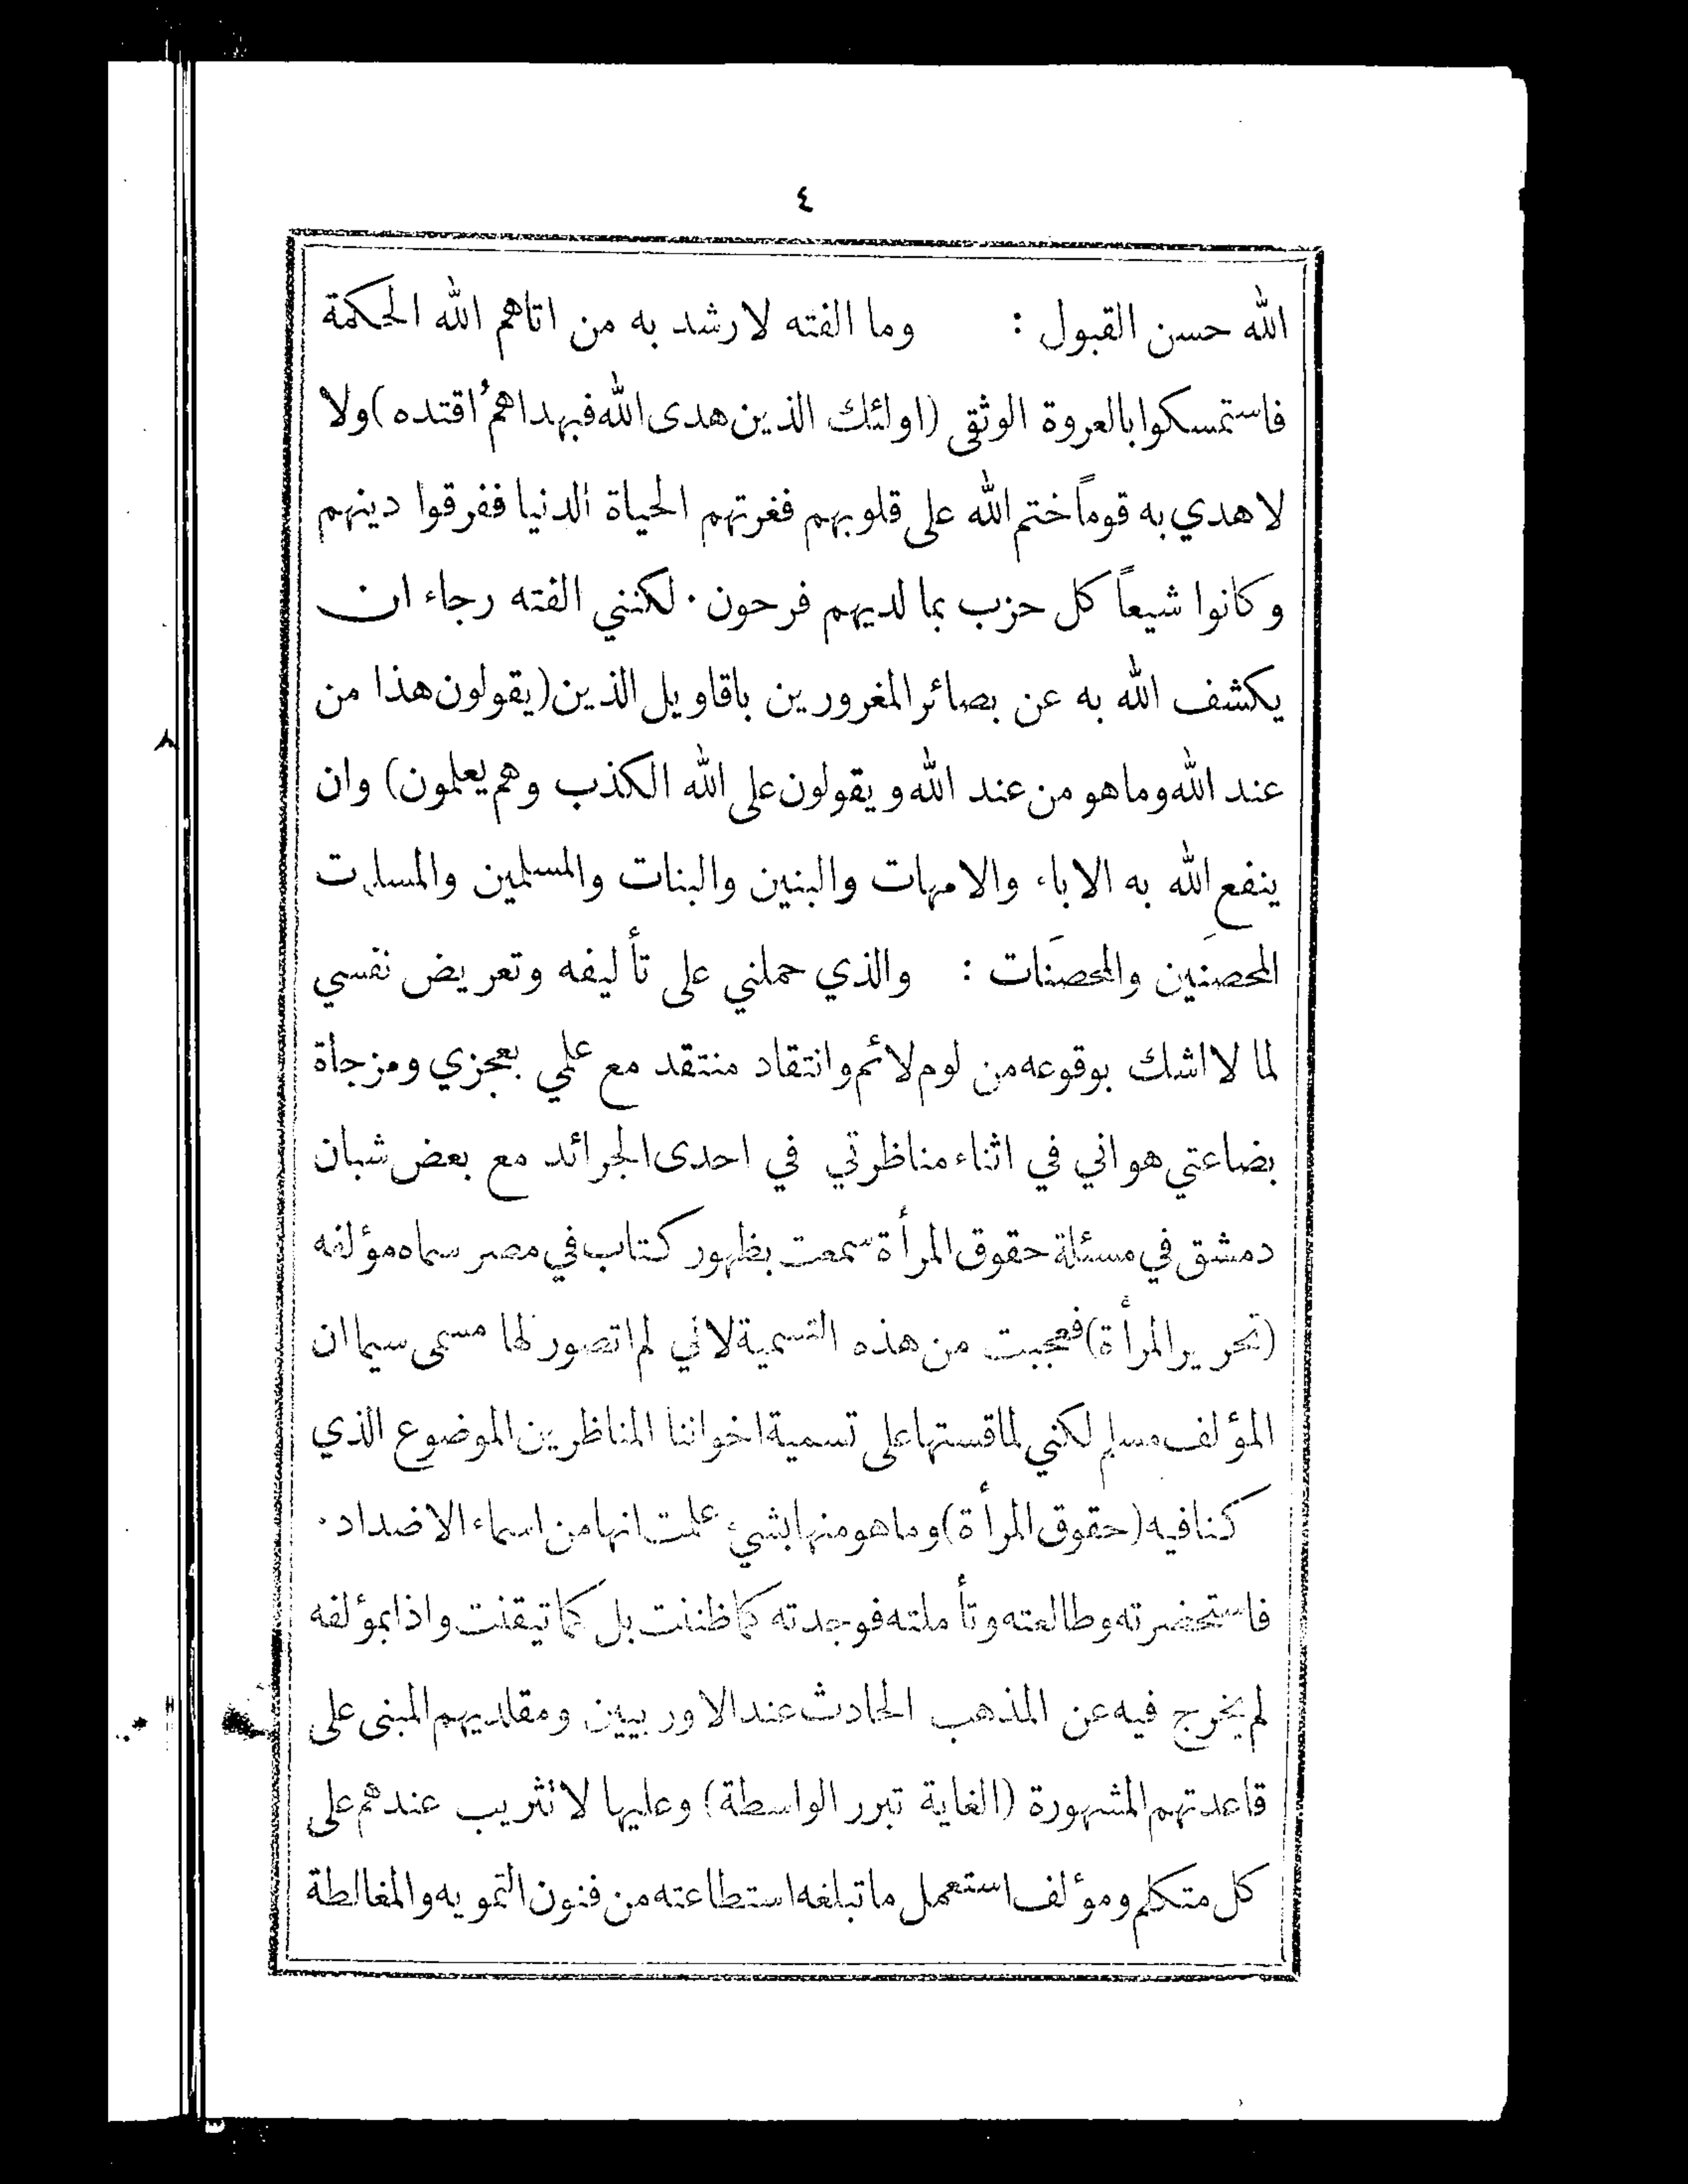 ٤
الله حسن القبول : وما الفته لارشد به من اتاهم الله الحكمة
فاستمسكوا بالعروة الوثقى (اولئك الذين هدى الله فبهداهمُ اقتده) ولا
لاهدي به قوماً ختم الله على قلوبهم فغرتهم الحياة الدنيا ففرقوا دينهم
وكانوا شيعاً كل حزب بما لديهم فرحون . لكنني الفته رجاء ان
يكشف الله به عن بصائر المغرورين باقاويل الذين (يقولون هذا من
عند الله وما هو من عند الله ويقولون على الله الكذب وهم يعلمون) وان
ينفع الله به الاباء والامهات والبنين والبنات والمسلمين والمسلمات
المحصَنين والمحصَنات : والذي حملني على تأليفه وتعريض نفسي
لما لا اشك بوقوعه من لوم لائم وانتقاد منتقد مع علمي بعجزي ومزجاة
بضاعتي هو اني في اثناء مناظرتي في احدى الجرائد مع بعض شبان
دمشق في مسئلة حقوق المرأة سمعت بظهور كتاب في مصر سماه مؤلفه
(تحرير المرأة) فعجبت من هذه التسمية لاني لم اتصور لها مسمى سيما ان
المؤلف مسلم لكني لما قستها على تسمية اخواننا المناظرين الموضوع الذي
كنا فيه (حقوق المرأة) وما هو منها بشيء علمت انها من اسماء الاضداد .
فاستحضرته وطالعته وتأملته فوجدته كما ظننت بل كما تيقنت واذا بمؤلفه
لم يخرج فيه عن المذهب الحادث عند الاوربيين ومقلديهم المبنى على
قاعدتهم المشهورة (الغاية تبرر الواسطة) وعليها لا تثريب عندهم على
كل متكلم ومؤلف استعمل ما تبلغه استطاعته من فنون التمويه والمغالطة